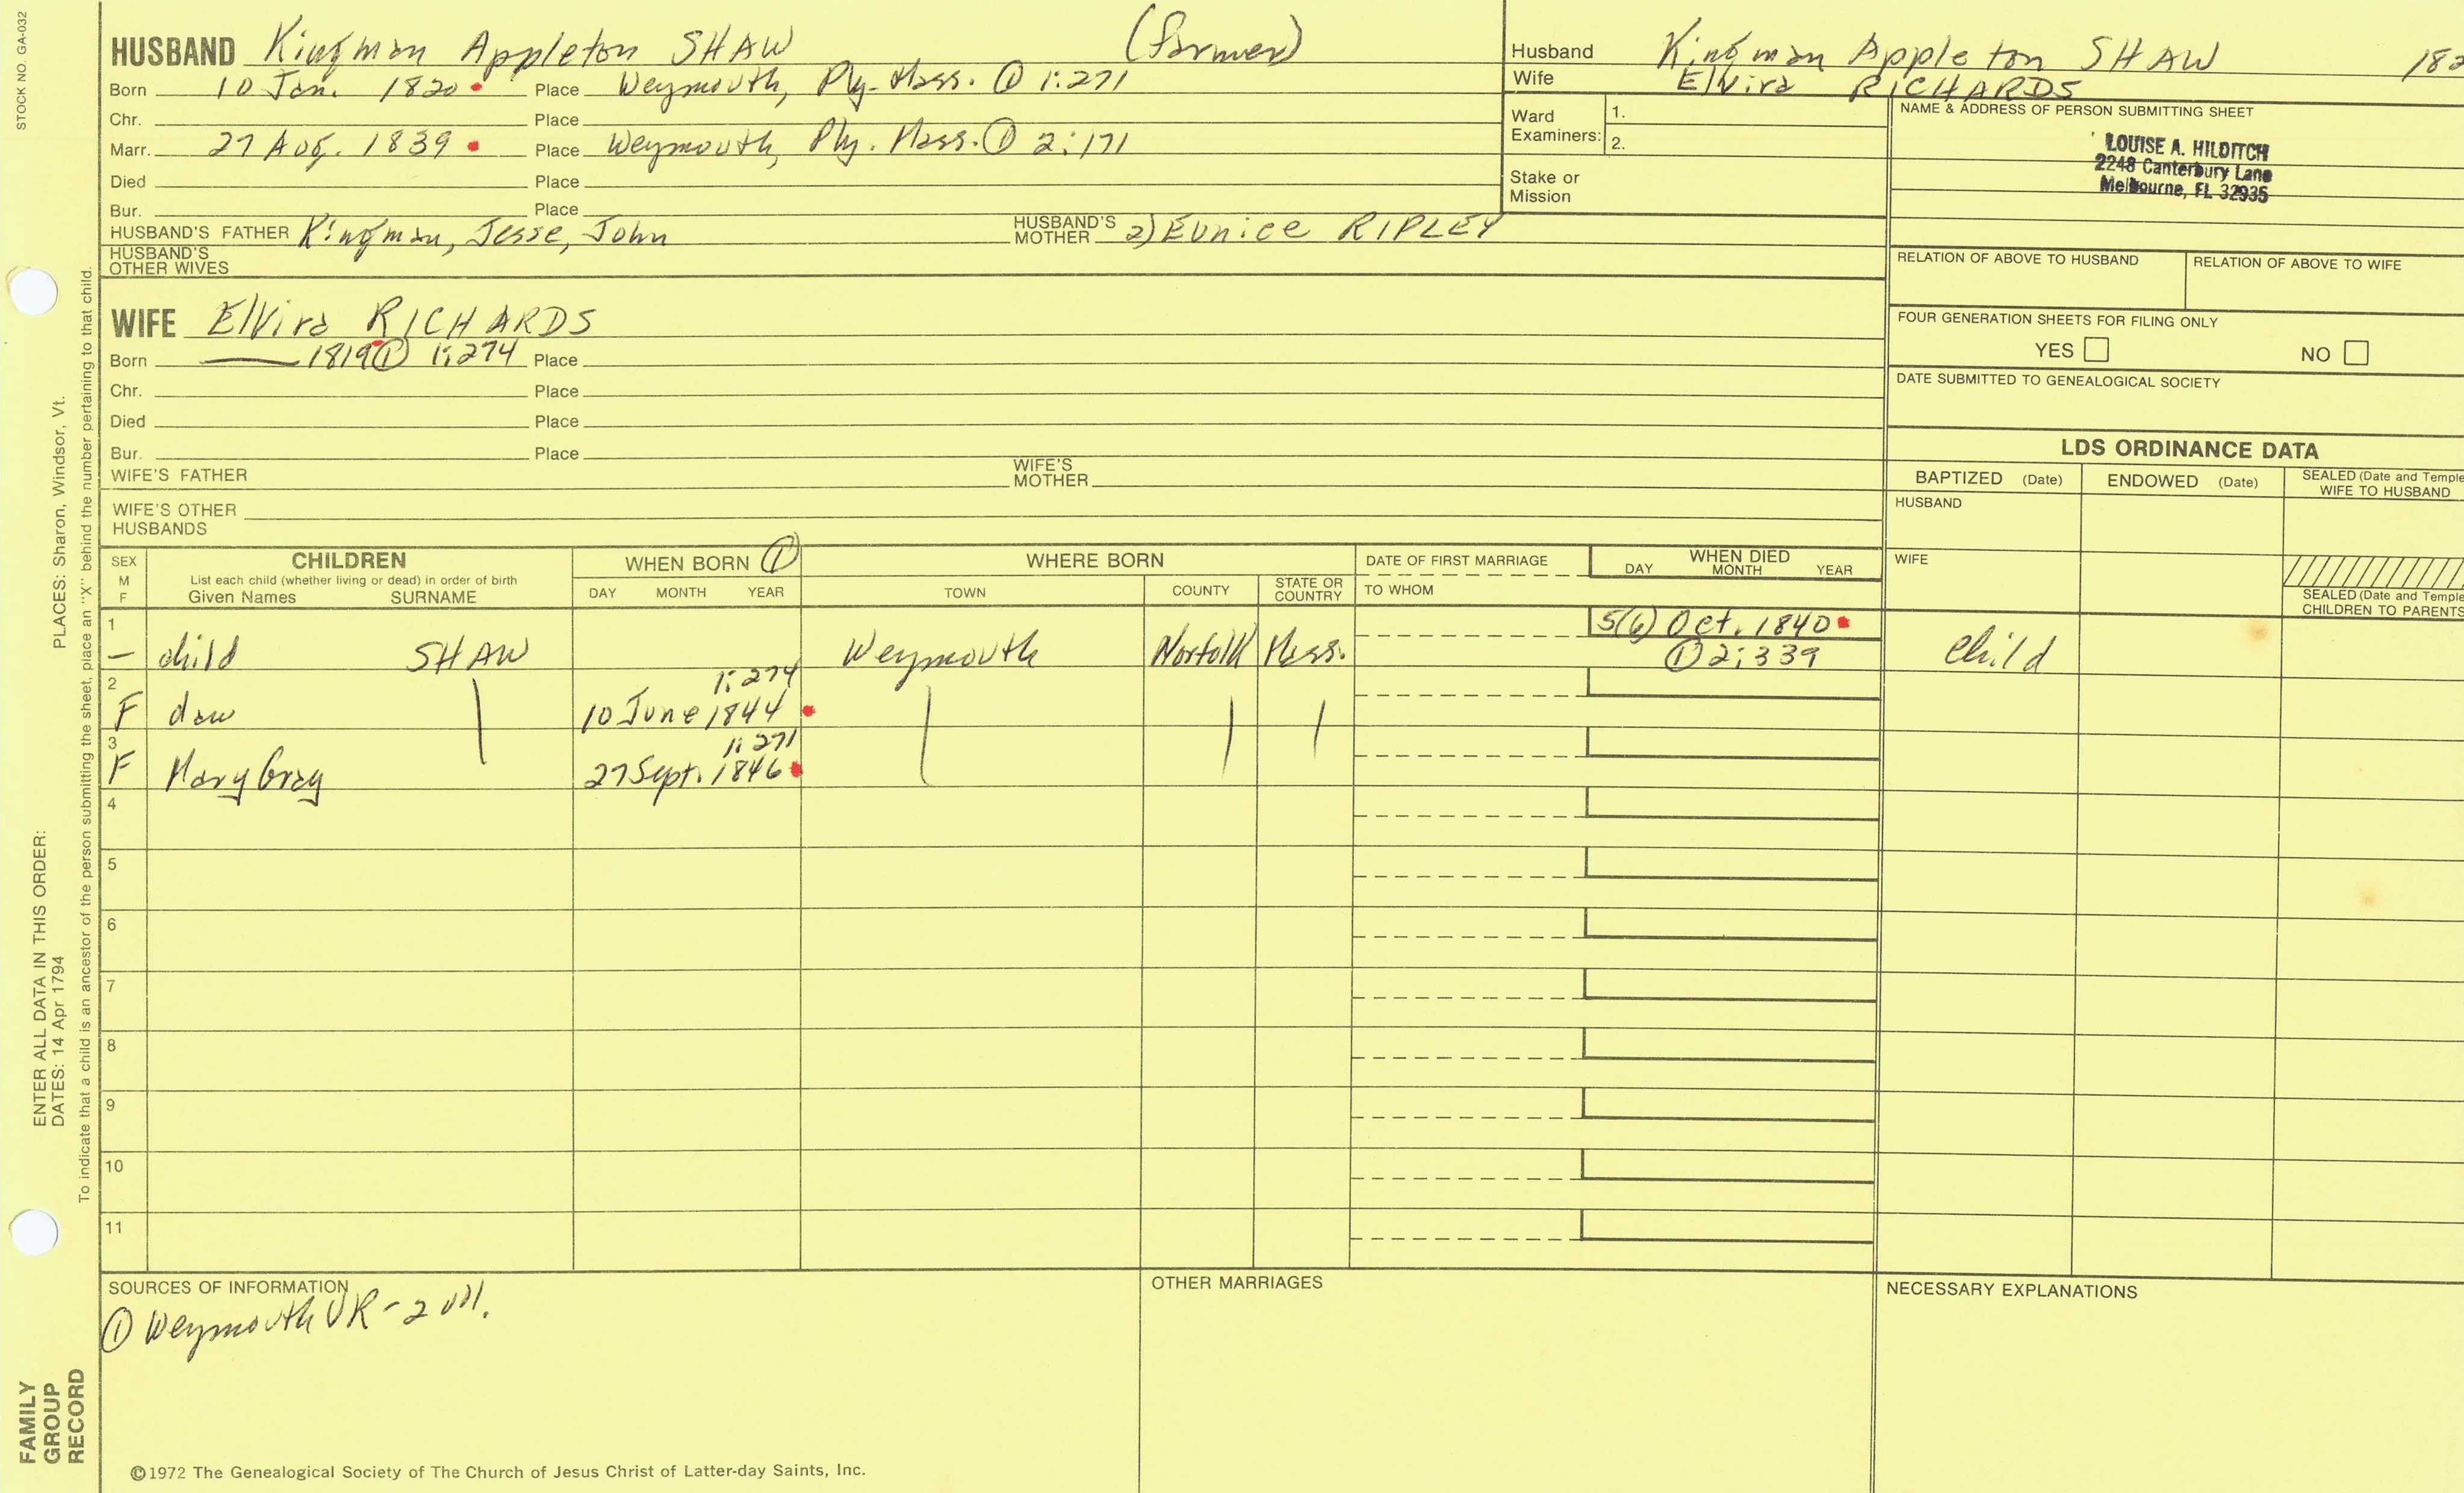 STOCK NO. GA-032
HUSBAND Kingman Appleton SHAW (farmer)
Born 10 Jan. 1820 Place Weymouth, Ply. Mass. ① 1:271
Chr. Place
Marr. 27 Aug. 1839 Place Weymouth, Ply. Mass. ① 2:171
Died Place
Bur. Place
HUSBAND'S FATHER Kingman, Jesse, John HUSBAND'S MOTHER 2) Eunice RIPLEY
HUSBAND'S OTHER WIVES
WIFE Elvira RICHARDS
Born — 1819 ① 1:274 Place
Chr. Place
Died Place
Bur. Place
WIFE'S FATHER WIFE'S MOTHER
WIFE'S OTHER HUSBANDS
Husband Kingman Appleton SHAW 182
Wife Elvira RICHARDS
Ward Examiners: 1.
2.
Stake or Mission
NAME & ADDRESS OF PERSON SUBMITTING SHEET
LOUISE A. HILDITCH
2248 Canterbury Lane
Melbourne, FL 32935
RELATION OF ABOVE TO HUSBAND RELATION OF ABOVE TO WIFE
FOUR GENERATION SHEETS FOR FILING ONLY
YES NO
DATE SUBMITTED TO GENEALOGICAL SOCIETY
LDS ORDINANCE DATA
BAPTIZED (Date) ENDOWED (Date) SEALED (Date and Temple
WIFE TO HUSBAND
HUSBAND
WIFE
SEALED (Date and Temple
CHILDREN TO PARENTS
SEX M F CHILDREN WHEN BORN ① WHERE BORN DATE OF FIRST MARRIAGE WHEN DIED
List each child (whether living or dead) in order of birth
Given Names SURNAME DAY MONTH YEAR TOWN COUNTY STATE OR COUNTRY TO WHOM DAY MONTH YEAR
1 5(6) Oct. 1840
— child SHAW Weymouth Norfolk Mass. ① 2:339 Child
2 1:274
F dau 10 June 1844
3 1:271
F Mary Gray 27 Sept. 1846
4
5
6
7
8
9
10
11
SOURCES OF INFORMATION OTHER MARRIAGES NECESSARY EXPLANATIONS
① Weymouth VR - 2 vol.
©1972 The Genealogical Society of The Church of Jesus Christ of Latter-day Saints, Inc.
FAMILY
GROUP
RECORD
ENTER ALL DATA IN THIS ORDER:
DATES: 14 Apr 1794 PLACES: Sharon, Windsor, Vt.
To indicate that a child is an ancestor of the person submitting the sheet, place an "X" behind the number pertaining to that child.